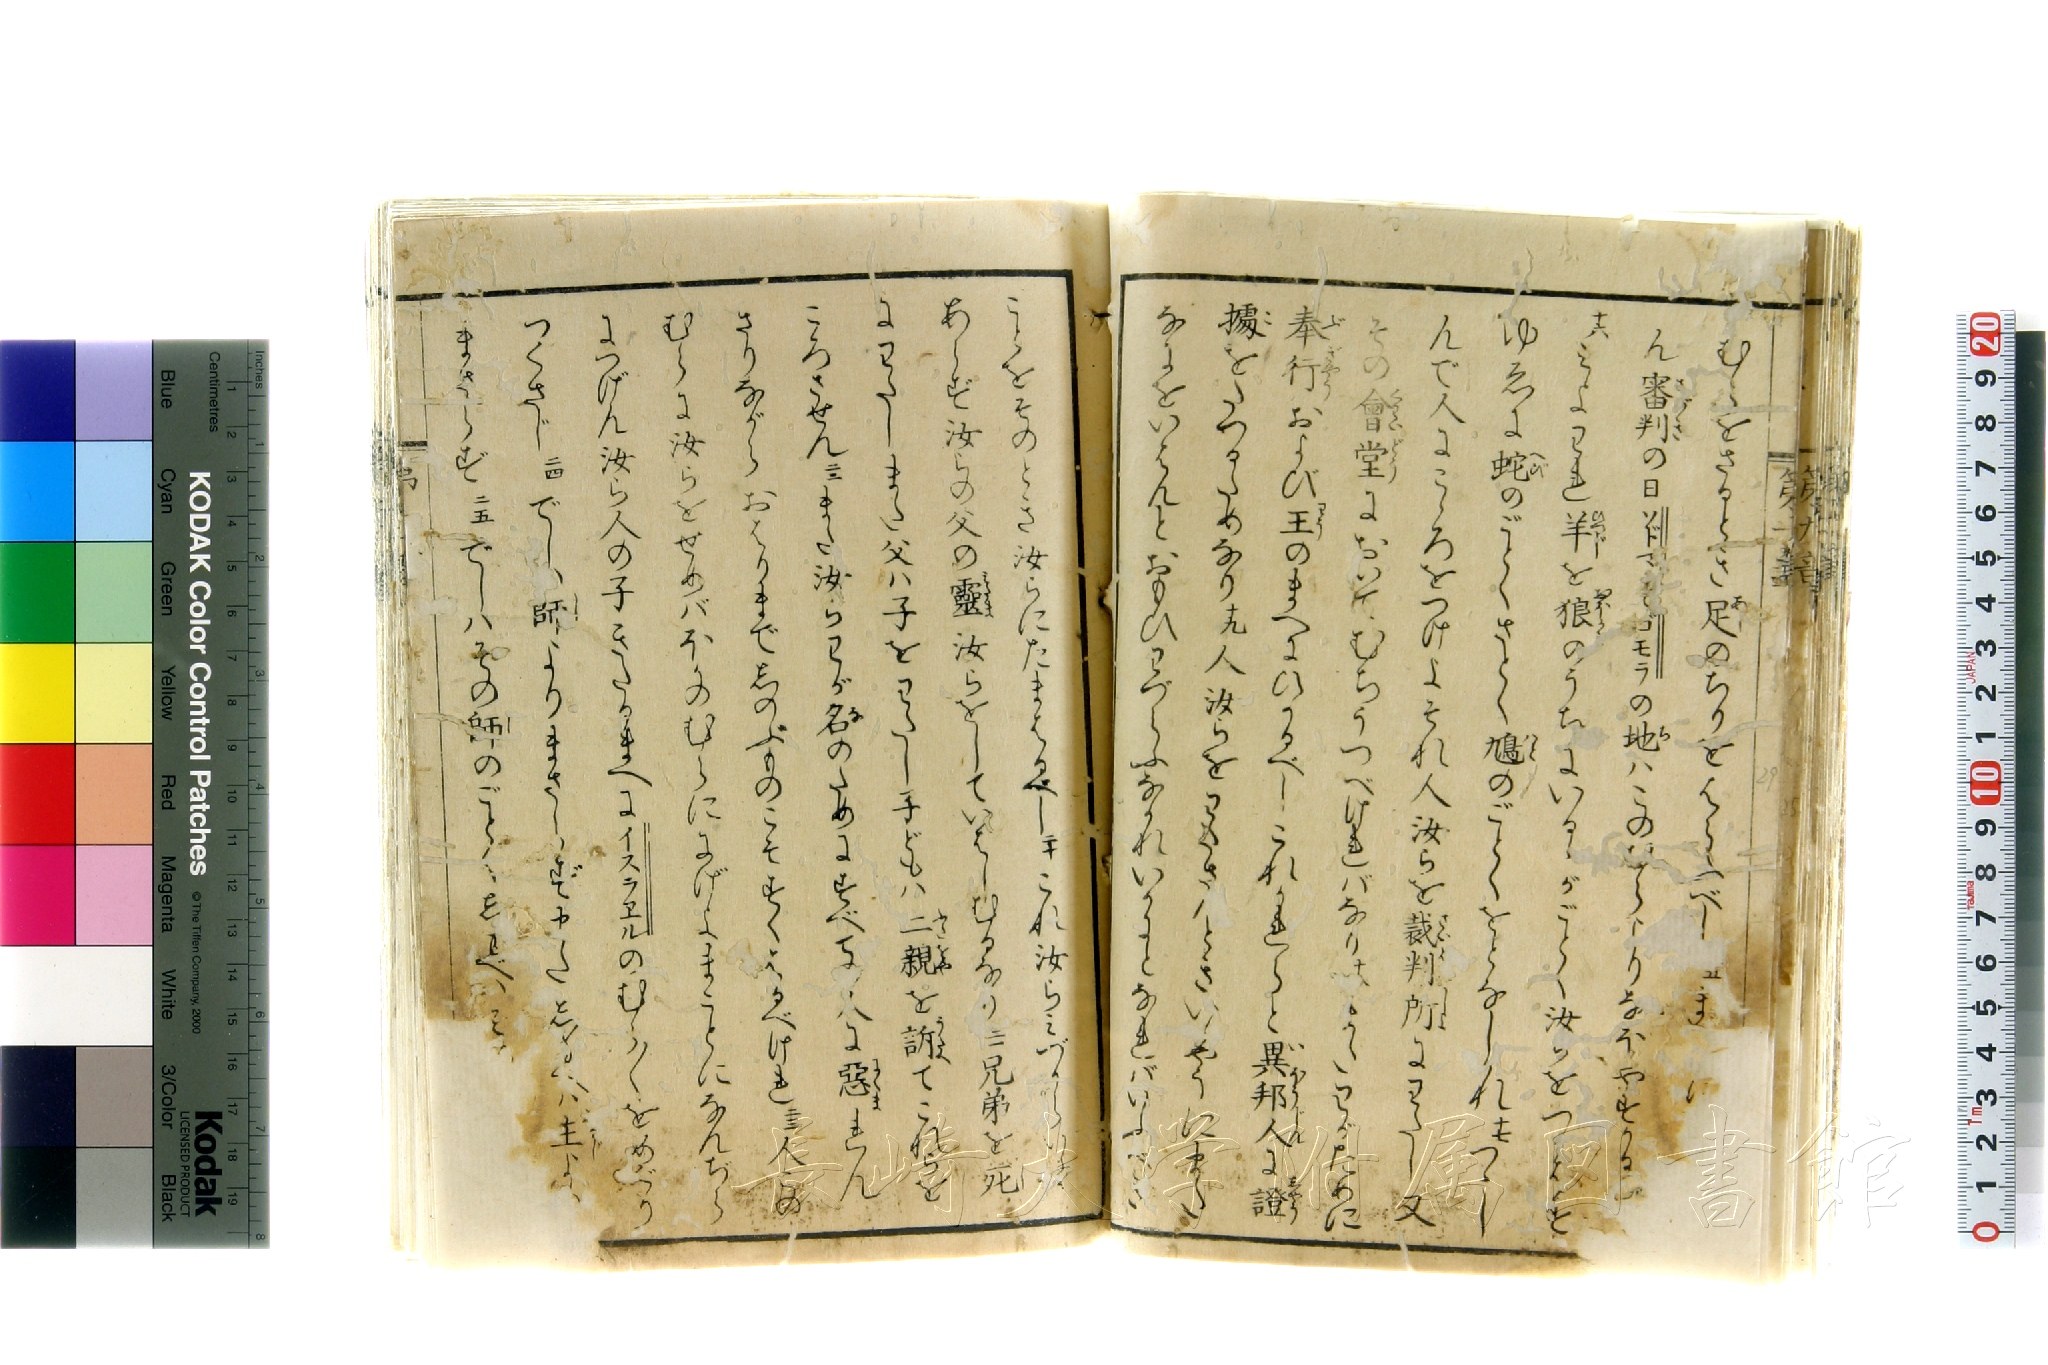 むらをさるとき足のちりをはらふべし
ん審判の日ソドマとゴモラの地ハこのむらよりなほやすかる
十六みよわれ羊を狼のうちにいるるがごとく汝らをつかはす
ゆゑに蛇のごとくさとく鳩のごとくをとなしかれ十七つつし
んで人にこころをつけよそれ人汝らを裁判所にわたし又
その會堂においてむちうつべければなり十八かつわがために
奉行および王のまへにひかるべしこれかれらと異邦人に證
據をたつるためなり十九人汝らをわたさんときいかやうにまた
なにをいはんとおもひわづらふなかれいかにとなればいふべき
ことをそのとき汝らにたまはるべし二十これ汝らみづから
あらず汝らの父の靈汝らをしていはしむるなり二一兄弟を死
にわたしまた父ハ子をわたし子どもハ二親を訴てこれを
ころさせん二二また汝らわが名のためにすべての人に惡まれん
さりながらおはりまでしのぶものこそすくはるべけれ二三人この
むらに汝らをせめバほかのむらににげよまことになんぢら
につげん汝ら人の子きたるまへにイスラヱルのむらむらをめぐり
つくさじ二四でしハ師よりまさらずまたしもべハ主より
まさらず二五でしハその師のごとくしもべハ
第九
KODAK Color Control Patches
© The Tiffen Company, 2000
Kodak
LICENSED PRODUCT
Inches
Centimetres
Blue
Cyan
Green
Yellow
Red
Magenta
White
3/Color
Black
長崎大学附属図書館
JAPAN
Tajima